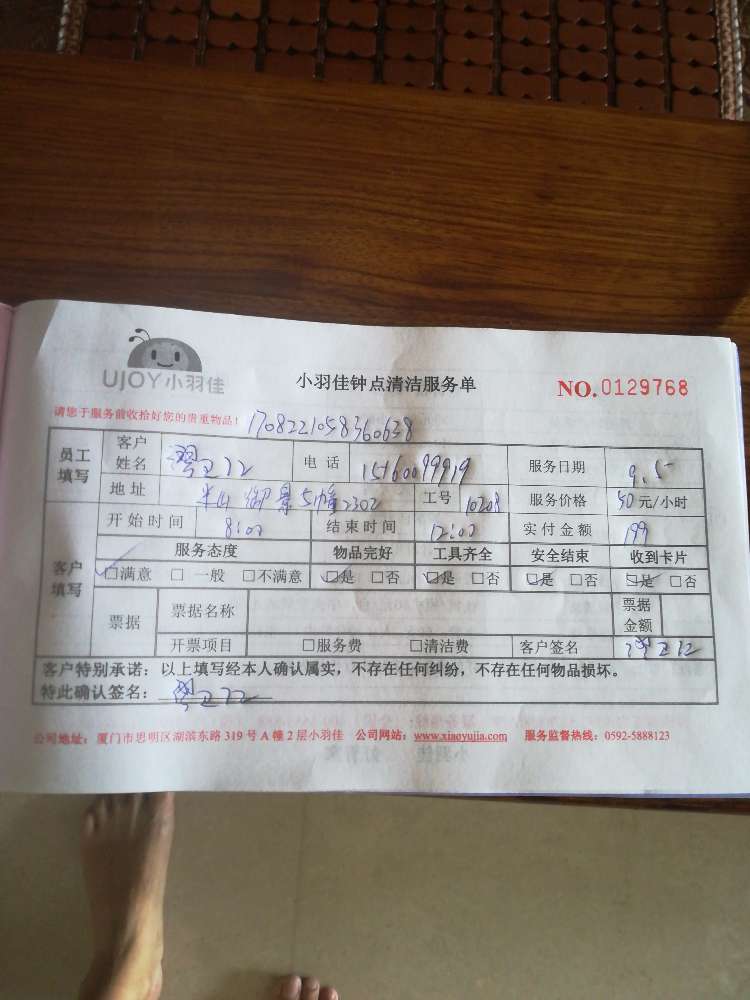 UJOY小羽佳
小羽佳钟点清洁服务单
NO.0129768
请您于服务前收拾好您的贵重物品!
员工填写 客户姓名 电话 15160099919 服务日期 9.5
地址 半山御景5幢2302 工号 10208 服务价格 50元/小时
开始时间 8:00 结束时间 12:00 实付金额 199
客户填写 服务态度 物品完好 工具齐全 安全结束 收到卡片
☑满意 □一般 □不满意 ☑是 □否 ☑是 □否 ☑是 □否 ☑是 □否
票据 票据名称 票据金额
开票项目 □服务费 □清洁费 客户签名
客户特别承诺：以上填写经本人确认属实，不存在任何纠纷，不存在任何物品损坏。
特此确认签名：
公司地址：厦门市思明区湖滨东路319号A幢2层小羽佳 公司网站：www.xiaoyujia.com 服务监督热线：0592-5888123